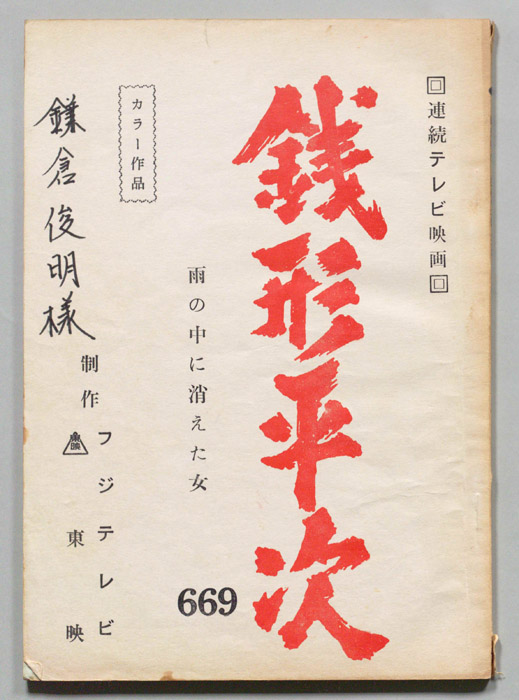 回連続テレビ映画回
銭形平次
雨の中に消えた女
669
カラー作品
制作
フジテレビ
東映
東映
鎌倉俊明様